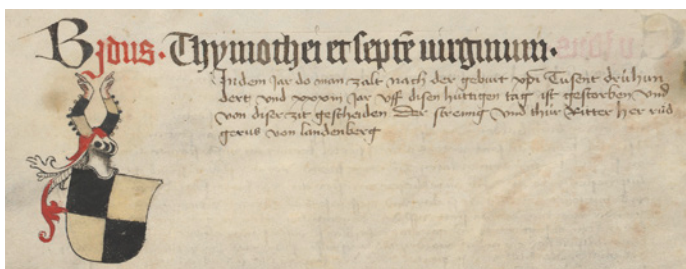 B ydus · Thymothei et septē uirginum ·
In dem Jar do man zalt nach der geburt xp̄i Tusent drühun
dert vnd xxxiii Jar vff disen hüttigen tag ist gestorben vnd
von diser zit gescheiden Der streng vnd thür Ritter her rüd
gerus von landenberg